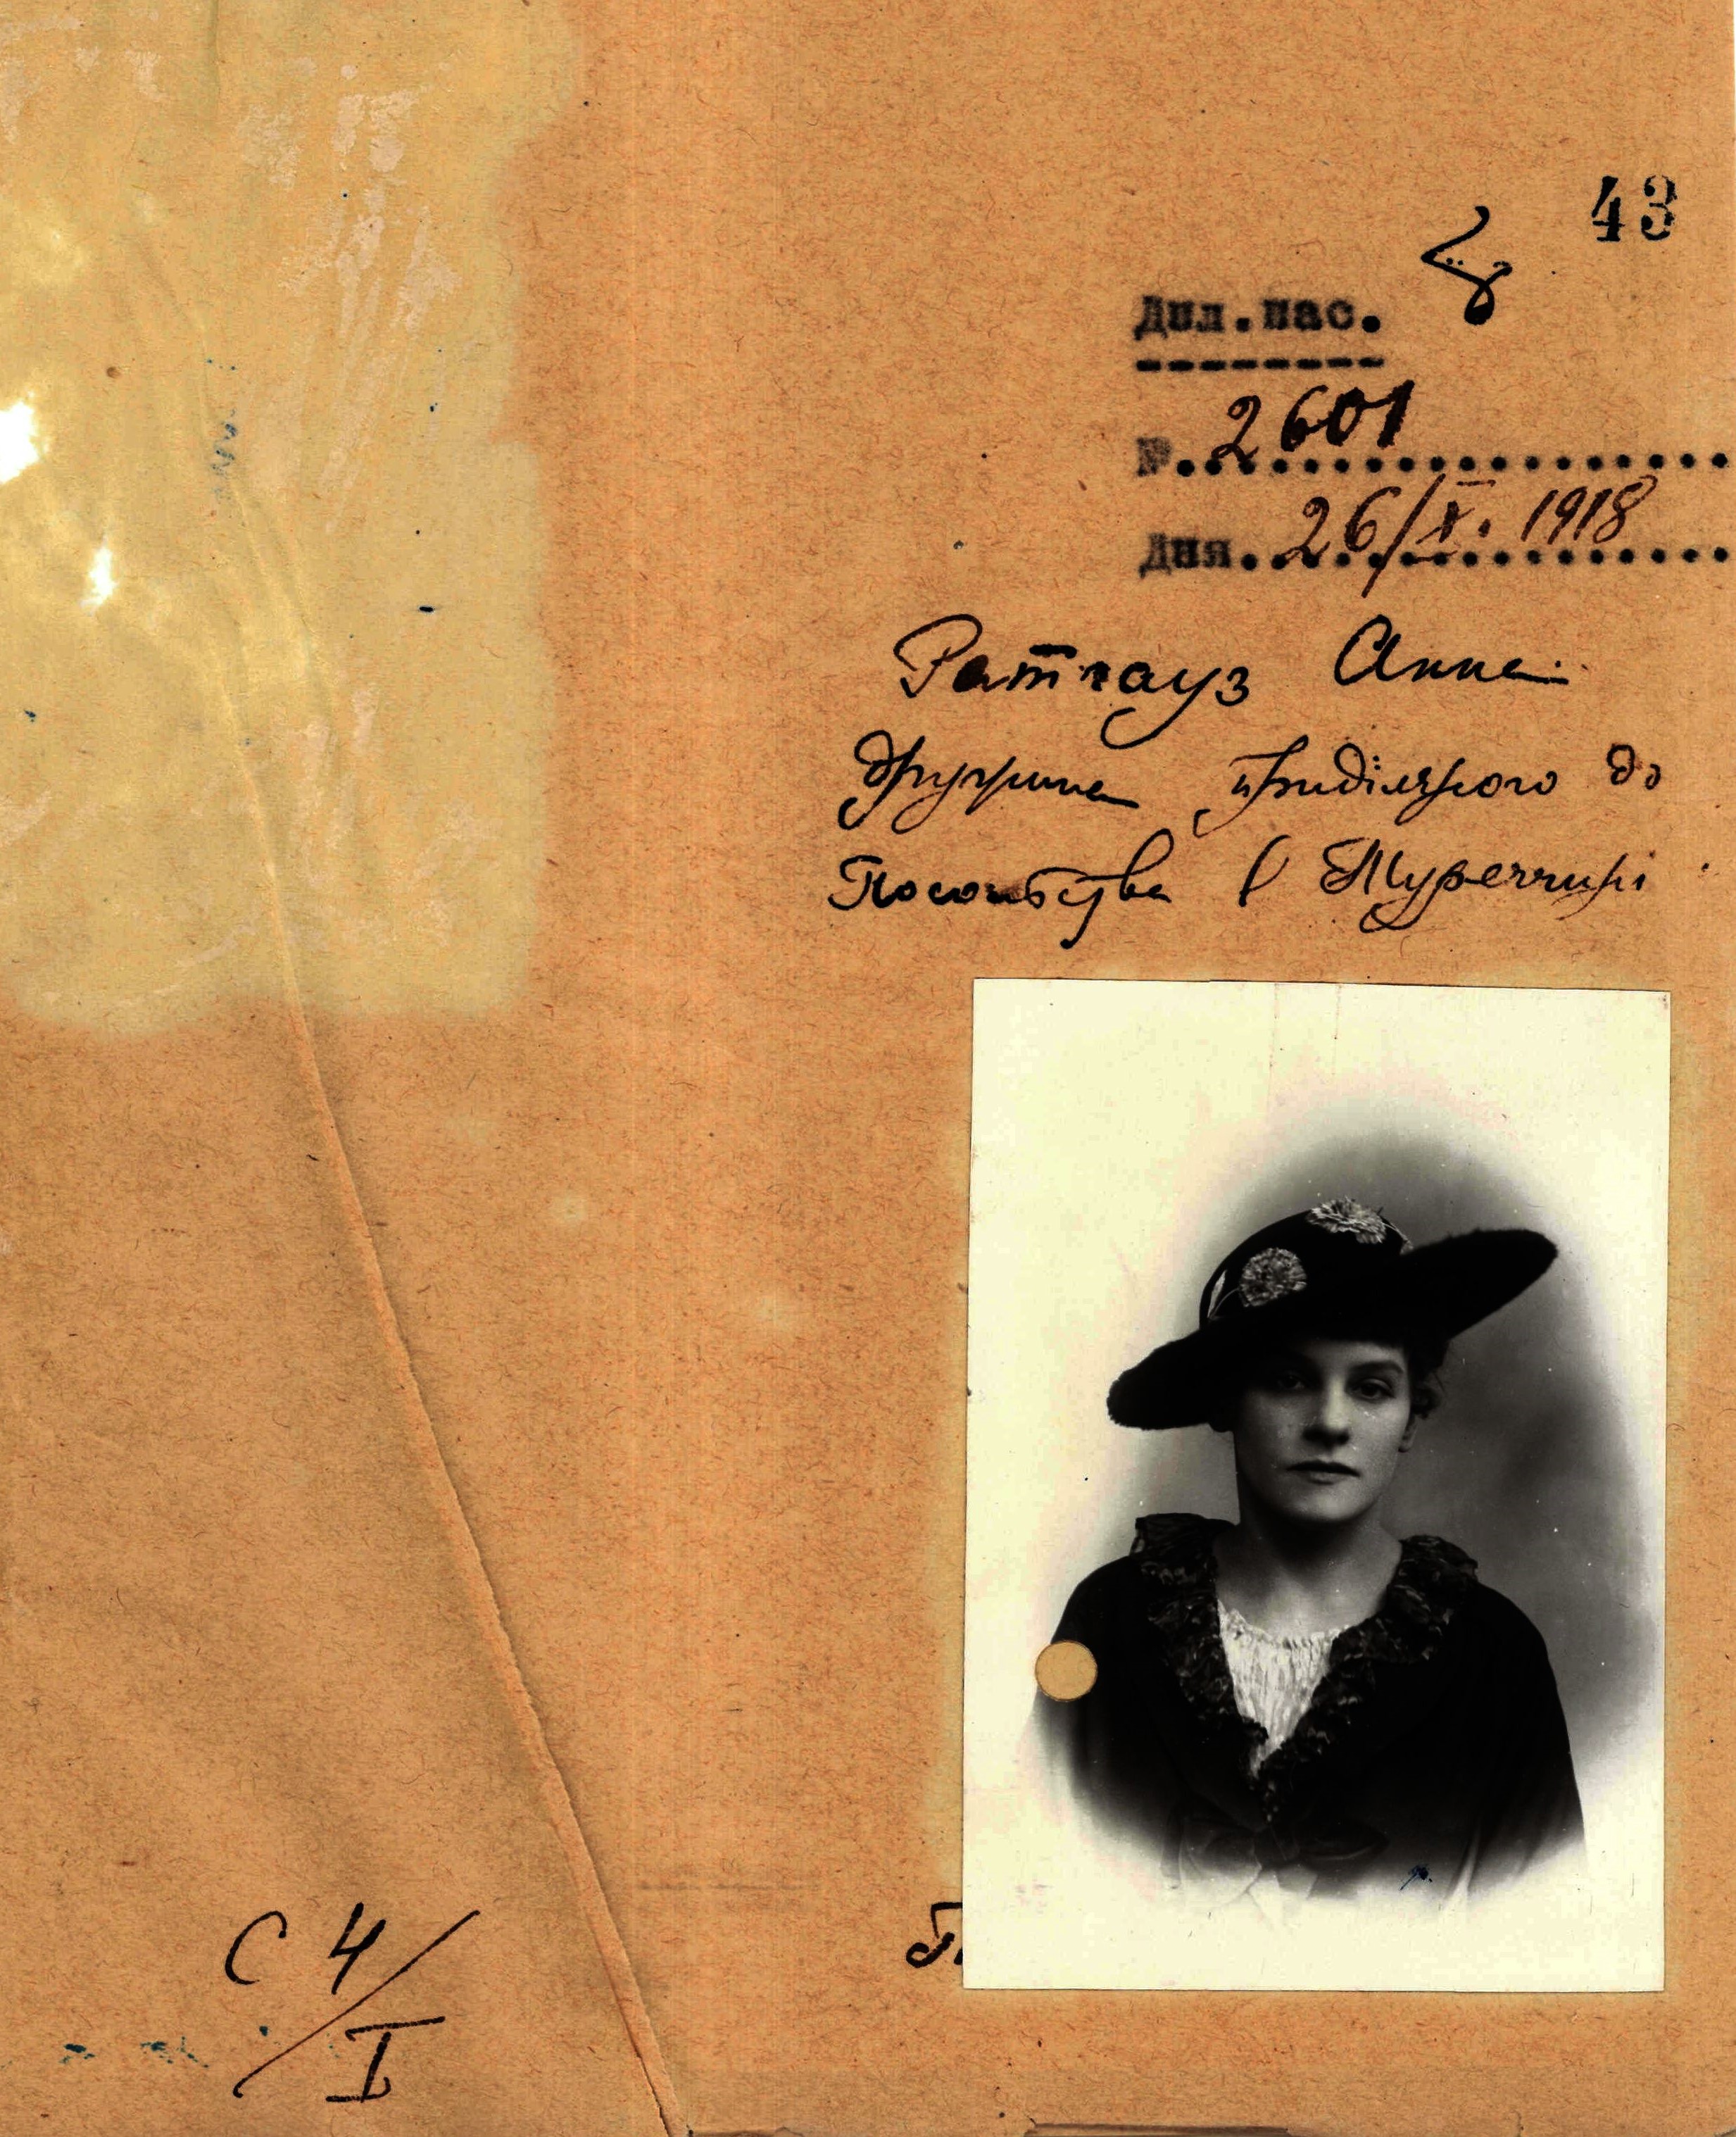 43
Дпл.пас.
№. 2601
Дня. 26/X. 1918
Ратгауз Анна
дружина приділеного до
Посольства в Туреччині
С 4/I